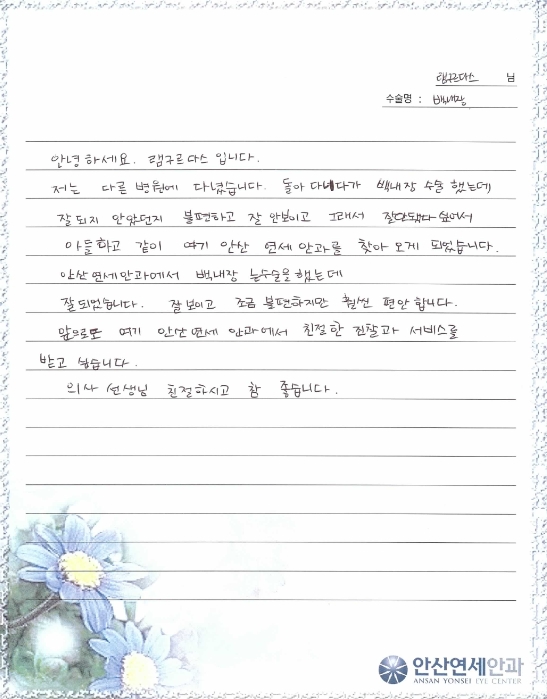 램구르다스 님
수술명 : 백내장
안녕하세요. 램구르다스 입니다.
저는 다른 병원에 다녔습니다. 돌아 다니다가 백내장 수술 했는데
잘 되지 안았던지 불편하고 잘 안보이고 그래서 잘 안됐다 싶어서
아들하고 같이 여기 안산 연세 안과를 찾아 오게 되었습니다.
안산 연세 안과에서 백내장 눈수술을 했는데
잘 되었습니다. 잘 보이고 조금 불편하지만 훨씬 편안 합니다.
앞으로도 여기 안산 연세 안과에서 친절한 진찰과 서비스를
받고 싶습니다.
의사 선생님 친절하시고 참 좋습니다.
안산연세안과
ANSAN YONSEI EYE CENTER